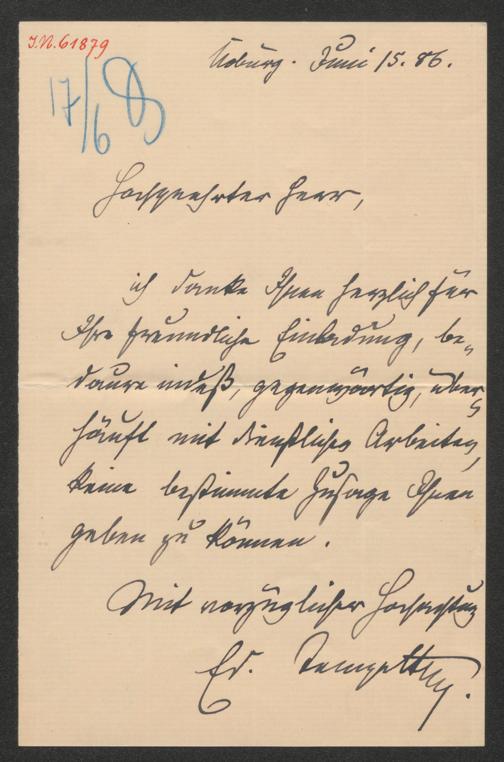 I.N. 61879
17/6 86
Coburg. Juni 15. 86.
Hochgeehrter Herr,
ich danke Ihnen herzlich für
Ihre freundliche Einladung, be-
daure indeß, gegenwärtig, über-
häuft mit dienstlichen Arbeiten,
keine bestimmte Zusage Ihnen
geben zu können.
Mit vorzüglicher Hochachtung
Ed. Tempeltey.